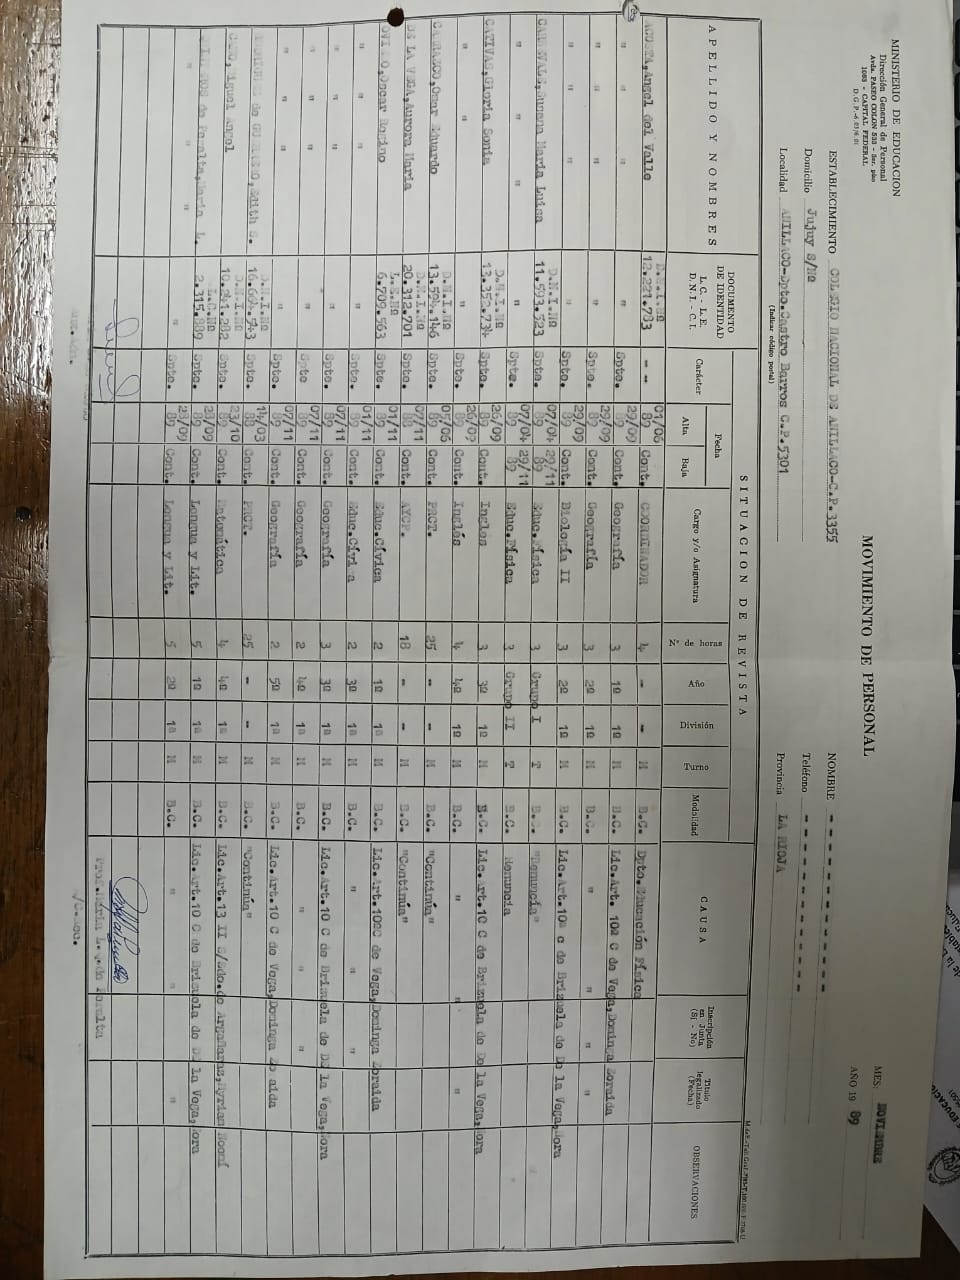 MINISTERIO DE EDUCACION
Dirección General de Personal
Avda. PASEO COLON 533 - 8er. piso
1063 - CAPITAL FEDERAL
MOVIMIENTO DE PERSONAL
MES: NOVIEMBRE
AÑO 19 89
ESTABLECIMIENTO COLEGIO NACIONAL DE ANILLACO-C.P.3355
NOMBRE
Domicilio Jujuy S/Nº
Teléfono
Localidad ANILLACO-Dpto.Castro Barros C.P.5301
(Indicar código postal)
Provincia LA RIOJA
SITUACION DE REVISTA
APELLIDO Y NOMBRES
DOCUMENTO DE IDENTIDAD L.C. - L.E. D.N.I. - C.I.
Carácter
Fecha
Alta Baja
Cargo y/o Asignatura
Nº de horas
Año
División
Turno
Modalidad
CAUSA
Inscripción en Junta (Si - No)
Título legalizado (Fecha)
OBSERVACIONES
ACOSTA,Angel del Valle D.N.I.Nº 12.221.783 -- 01/06 89 Cont. COORDINADOR 4 - - M B.C. Dpto.Educación Física
" " " Spto. 22/09 89 Cont. Geografía 3 1º 1º M B.C. Lic.Art. 10º C de Vega,Dominga Zoraida
" " " Spto. 29/09 89 Cont. Geografía 3 2º 1º M B.C. " " "
" " " Spto. 29/09 89 Cont. Biología II 3 2º 1º M B.C. Lic.Art.10º c de Brizuela de De la Vega,Nora
Susana María Luisa D.N.I.Nº 11.593.523 07/04 89 29/11 89 Educ.Física 3 Grupo I T "Renuncia"
" " " " Spto. 07/04 89 29/11 89 Educ.Física 3 Grupo II T B.C. Renuncia
CATIVAS,Gloria Sonia D.N.I.Nº Spto. 26/09 89 Cont. Inglés 3 3º 1º M B.C. Lic.Art.10 C de Brizuela de De la Vega,Nora
" " " Spto. 26/09 89 Cont. Inglés 4 4º 1º M B.C. " " "
CARRAZCO,Omar Eduardo D.N.I.Nº 13.594.146 Spto. 05/06 89 Cont. PACT. 25 - - M B.C. "Continúa"
DE LA VEGA,Aurora María D.N.I.Nº 20.312.701 Spto. 07/11 88 Cont. AYCP. 18 - - M B.C. "Continúa"
Oscar L.E.Nº 6.709.563 Spto. 01/11 89 Cont. Educ.Cívica 2 1º 1º M B.C. Lic.Art.10ºC de Vega,Dominga Zoraida
" " " Spto. 01/11 89 Cont. Educ.Cívica 2 3º 1º M B.C. " "
" " " Spto. 07/11 89 Cont. Geografía 3 3º 1º M B.C. Lic.Art.10 C de Brizuela de De la Vega,Nora
" " " Spto 07/11 89 Cont. Geografía 2 4º 1º M B.C. " "
" " " Spto. 07/11 89 Cont. Geografía 2 5º 1º M B.C. Lic.Art.10 C de Vega,Dominga Zoraida
Edith S. D.N.I.Nº Spto. 14/03 88 Cont. PACT. 25 - - M B.C. "Continúa"
Miguel Angel D.N.I.Nº Spto. 23/10 89 Cont. Matemática 4 4º 1º M B.C. Lic.Art.13 II
de Peralta,María L. L.C.Nº 2.315.889 Spto. 23/09 89 Cont. Lengua y Lit. 5 1º 1º M B.C. Lic.Art.10 C de Brizuela de De la Vega,Nora
" " " Spto. 28/09 89 Cont. Lengua y Lit. 5 2º 1º M B.C. " " "
Prof.María L. de Peralta